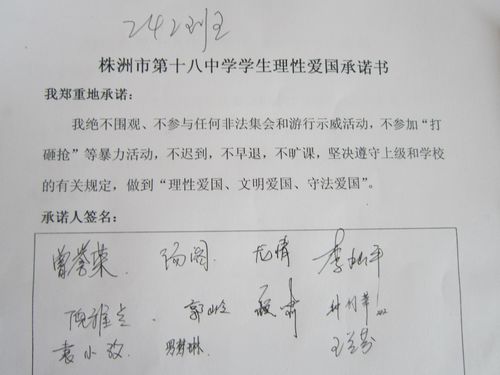 242班
株洲市第十八中学学生理性爱国承诺书
我郑重地承诺：
我绝不围观、不参与任何非法集会和游行示威活动，不参加“打
砸抢”等暴力活动，不迟到，不早退，不旷课，坚决遵守上级和学校
的有关规定，做到“理性爱国、文明爱国、守法爱国”。
承诺人签名：
龙倩
袁小玫